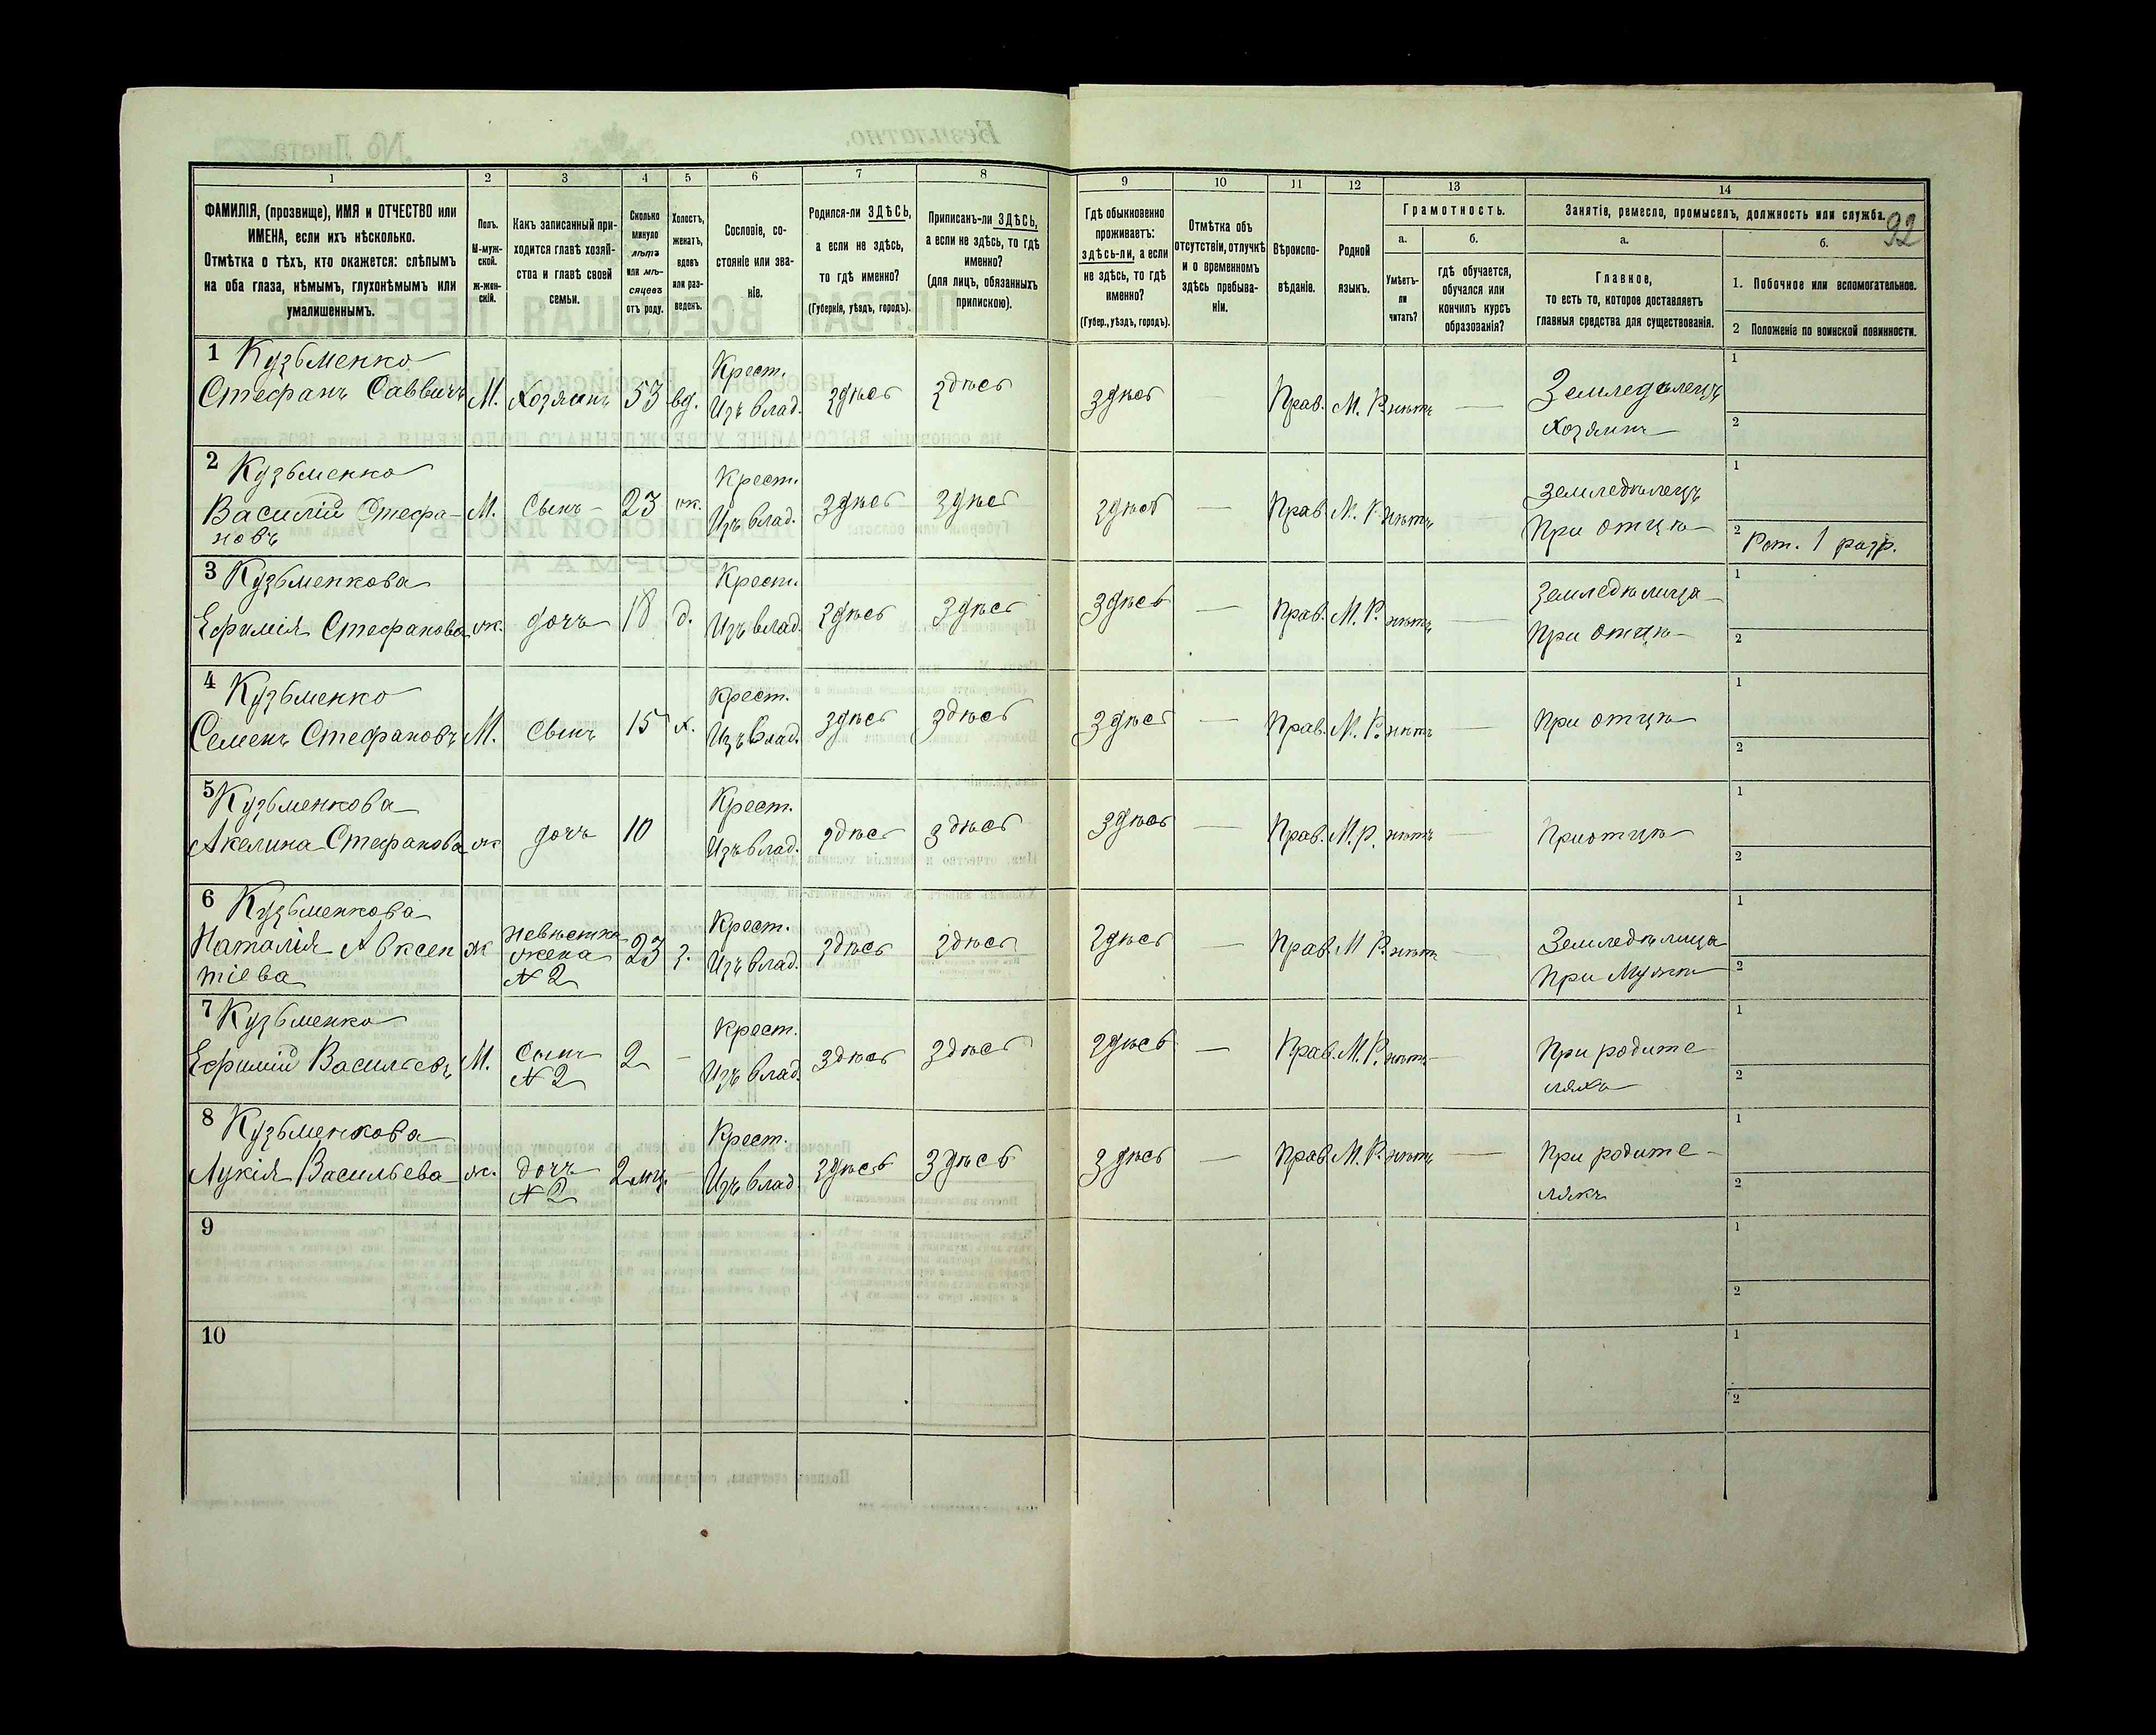 92
1 2 3 4 5 6 7 8 9 10 11 12 13 14
ФАМИЛІЯ, (прозвище), ИМЯ и ОТЧЕСТВО или
ИМЕНА, если ихъ нѣсколько.
Отмѣтка о тѣхъ, кто окажется: слѣпымъ
на оба глаза, нѣмымъ, глухонѣмымъ или
умалишеннымъ.
Полъ.
М-муж-
ской.
ж-жен-
скій.
Какъ записанный при-
ходится главѣ хозяй-
ства и главѣ своей
семьи.
Сколько
минуло
лѣтъ
или мѣ-
сяцевъ
отъ роду.
Холостъ,
женатъ,
вдовъ
или раз-
веденъ.
Сословіе, со-
стояніе или зва-
ніе.
Родился-ли ЗДѢСЬ,
а если не здѣсь,
то гдѣ именно?
(Губернія, уѣздъ, городъ).
Приписанъ-ли ЗДѢСЬ,
а если не здѣсь, то гдѣ
именно?
(для лицъ, обязанныхъ
припискою).
Гдѣ обыкновенно
проживаетъ:
здѣсь-ли, а если
не здѣсь, то гдѣ
именно?
(Губер., уѣздъ, городъ).
Отмѣтка объ
отсутствіи, отлучкѣ
и о временномъ
здѣсь пребыва-
ніи.
Вѣроиспо-
вѣданіе.
Родной
языкъ.
Грамотность.
а.
Умѣетъ-
ли
читать?
б.
гдѣ обучается,
обучался или
кончилъ курсъ
образованія?
Занятіе, ремесло, промыселъ, должность или служба.
а.
Главное,
то есть то, которое доставляетъ
главныя средства для существованія.
б.
1. Побочное или вспомогательное.
2 Положеніе по воинской повинности.
1 Кузьменко
Стефанъ Саввичъ М. Хозяинъ 53 вд. Крест. Изъ влад. здѣсь здѣсь здѣсь — Прав. М. Р. нѣтъ — Земледѣлецъ
Хозяинъ
1
2
2 Кузьменко
Василій Стефа-
новъ М. Сынъ 23 ж. Крест. Изъ влад. здѣсь здѣсь здѣсь — Прав. М. Р. нѣтъ Земледѣлецъ
При отцѣ
1
2 Рат. 1 разр.
3 Кузьменкова
Ефимія Стефанова ж. дочь 18 д. Крест. Изъ влад. здѣсь здѣсь здѣсь — Прав. М. Р. нѣтъ — Земледѣлица
При отцѣ
1
2
4 Кузьменко
Семенъ Стефановъ М. Сынъ 15 х. Крест. Изъ влад. здѣсь здѣсь здѣсь — Прав. М. Р. нѣтъ — При отцѣ
1
2
5 Кузьменкова
Акелина Стефанова ж дочь 10 Крест. Изъ влад. здѣсь здѣсь здѣсь — Прав. М. Р. нѣтъ — При отцѣ
1
2
6 Кузьменкова
Наталія Авксен
тіева ж Невѣстка
жена
№ 2 23 з. Крест. Изъ влад. здѣсь здѣсь здѣсь — Прав. М Р. нѣтъ — Земледѣлица
При Мужѣ
1
2
7 Кузьменко
Ефимій Васильевъ М. Сынъ
№ 2 2 — Крест. Изъ влад. здѣсь здѣсь здѣсь — Прав. М. Р. нѣтъ — При родите
ляхъ
1
2
8 Кузьменкова
Лукія Васильева ж. дочь
№ 2 2 мц. — Крест. Изъ влад. здѣсь здѣсь здѣсь — Прав. М. Р. нѣтъ — При родите-
ляхъ
1
2
9
1
2
10
1
2